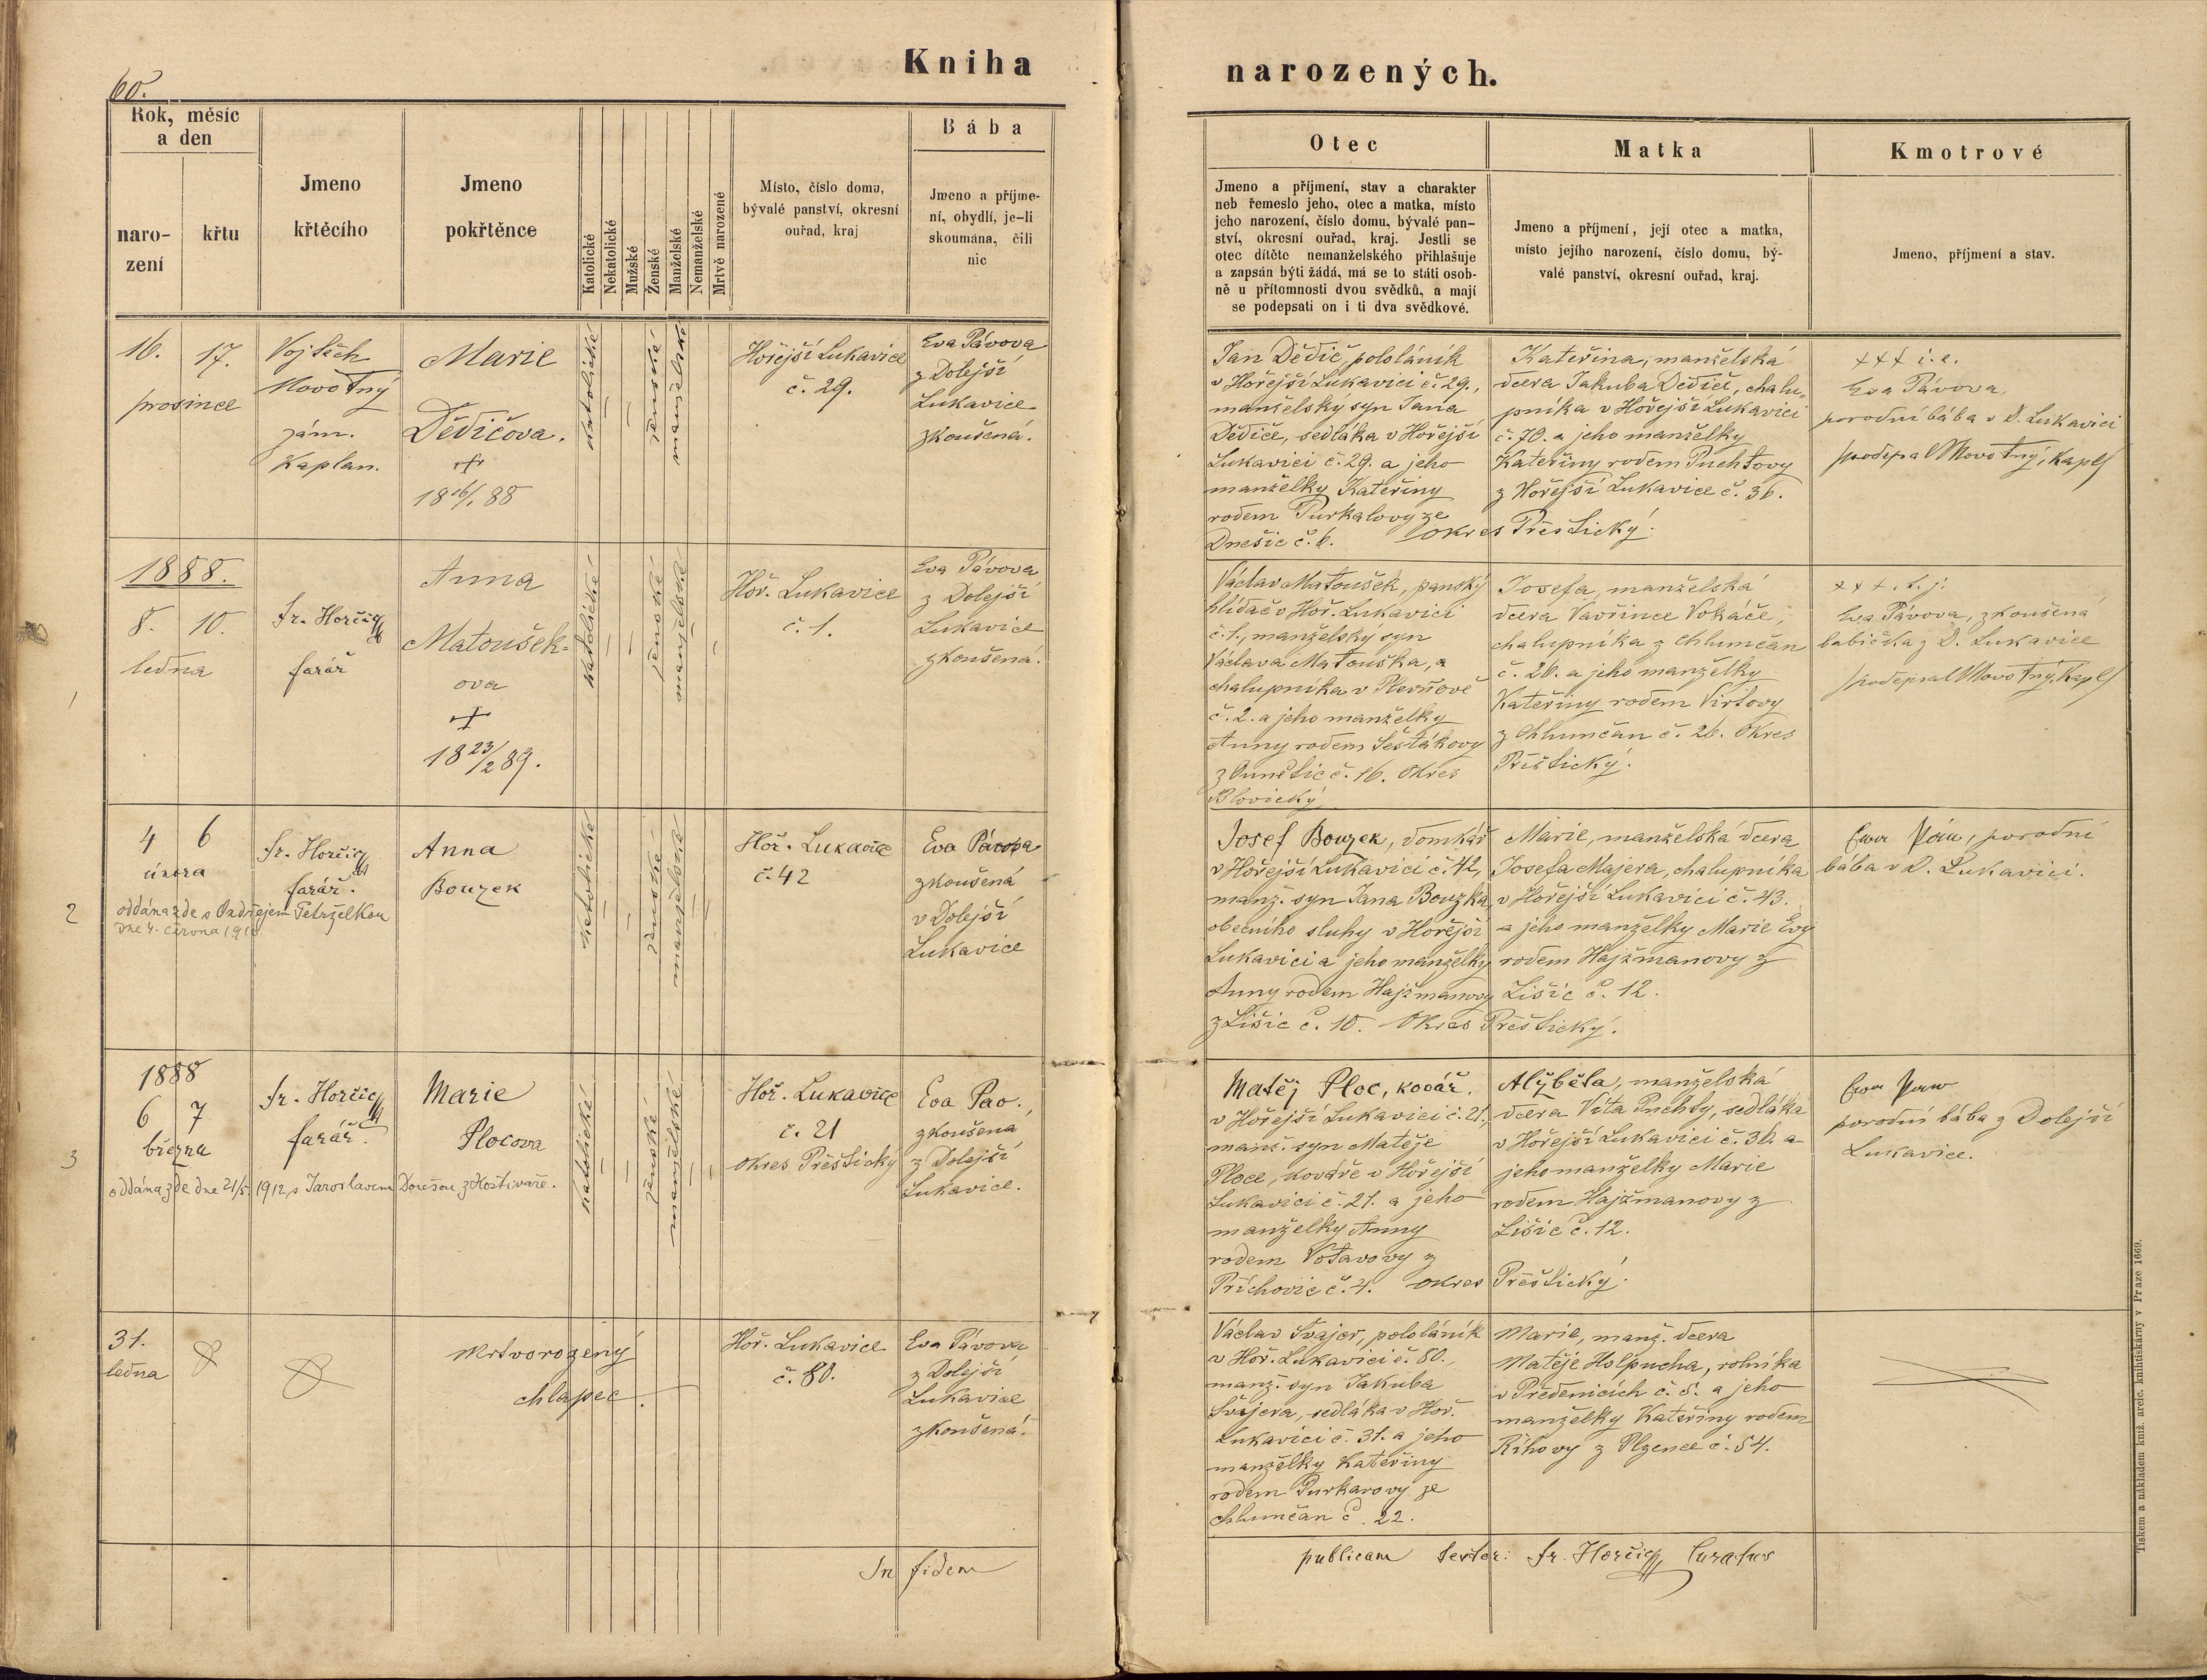 60.
Kniha
narozených.
Rok, měsíc
a den
naro-
zení
křtu
Jmeno
křtěcího
Jmeno
pokřtěnce
Katolické
Nekatolické
Mužské
Ženské
Manželské
Nemanželské
Mrtvě narozené
Místo, číslo domu,
bývalé panství, okresní
ouřad, kraj
Bába
Jmeno a příjme-
ní, obydlí, je-li
skoumána, čili
nic
Otec
Jmeno a příjmení, stav a charakter
neb řemeslo jeho, otec a matka, místo
jeho narození, číslo domu, bývalé pan-
ství, okresní ouřad, kraj. Jestli se
otec dítěte nemanželského přihlašuje
a zapsán býti žádá, má se to státi osob-
ně u přítomnosti dvou svědků, a mají
se podepsati on i ti dva svědkové.
Matka
Jmeno a příjmení, její otec a matka,
místo jejího narození, číslo domu, bý-
valé panství, okresní ouřad, kraj.
Kmotrové
Jmeno, příjmení a stav.
16. 17.
prosince
Vojtěch
Novotný
zám.
Kaplan.
Marie
Dědičova.
+
18 16/1 88
katolické
ženské
manželské
Hořejší Lukavice
č. 29.
Eva Pávova
z Dolejší
Lukavice
zkoušená.
Jan Dědič, pololáník
v Hořejší Lukavici č. 29.,
manželský syn Jana
Dědiče, sedláka v Hořejší
Lukavici č. 29. a jeho
manželky Kateřiny
rodem Purkalovy ze
Dnešic č. 6. Okres Přeštický.
Kateřina, manželská
dcera Jakuba Dědiče, chalu-
pníka v Hořejší Lukavici
č. 70. a jeho manželky
Kateřiny rodem Puchtovy
z Hořejší Lukavice č. 36.
+++ i. e.
Eva Pávova,
porodní bába v D. Lukavici
podepsal Novotný, Kapl
1888.
8. 10.
ledna
1
fr. Horčig
farář
Anna
Matoušek-
ova
+
18 23/2 89.
katolické
ženské
manželské
Hoř. Lukavice
č. 1.
Eva Pávova
z Dolejší
Lukavice
zkoušená.
Václav Matoušek, panský
hlídač v Hoř. Lukavici
č. 1., manželský syn
Václava Matouška, a
chalupníka v Plevňově
č. 2. a jeho manželky
Anny rodem Šestákovy
z Ounětic č. 16. Okres
Blovický.
Josefa, manželská
dcera Vavřince Vokáče,
chalupníka z Chlumčan
č. 26. a jeho manželky
Kateřiny rodem Virtovy
z Chlumčan č. 26. Okres
Přeštický.
+++. t. j.
Eva Pávova, zkoušená
babička z D. Lukavice
podepsal Novotný, Kapl
2
4 6
února
fr. Horčig
farář.
Anna
Bouzek
oddána zde s Ondřejem Petrželkou
dne 4. června 1910.
katolické
ženské
manželské
Hoř. Lukavice
č. 42
Eva Pávova
zkoušená
v Dolejší
Lukavice
Josef Bouzek, domkář
v Hořejší Lukavici č. 42,
manž. syn Jana Bouzka,
obecního sluhy v Hořejší
Lukavici a jeho manželky
Anny rodem Hajžmanovy
z Lišic č. 10. Okres Přeštický.
Marie, manželská dcera
Josefa Majera, chalupníka
v Hořejší Lukavici č. 43.
a jeho manželky Marie Evy
rodem Hajžmanovy z
Lišic č. 12.
Ewa Páw, porodní
bába v D. Lukavici.
3
1888
6 7
března
fr. Horčig
farář.
Marie
Plocova
oddána zde dne 21/5. 1912 s Jaroslavem Doušou z Hostivaře.
katolické
ženské
manželské
Hoř. Lukavice
č. 21
okres Přeštický
Eva Pav.
zkoušená
z Dolejší
Lukavice.
Matěj Ploc, kovář.
v Hořejší Lukavici č. 21.,
manž. syn Matěje
Ploce, kováře v Hořejší
Lukavici č. 21. a jeho
manželky Anny
rodem Votavovy z
Příchovic č. 4. okres Přeštický.
Alžběta, manželská
dcera Víta Puchty, sedláka
v Hořejší Lukavici č. 36. a
jeho manželky Marie
rodem Hajžmanovy z
Lišic č. 12.
Ewa Paw
porodní bába z Dolejší
Lukavice.
31.
ledna
Mrtvorozený
chlapec.
Hoř. Lukavice
č. 80.
Eva Pávova
z Dolejší
Lukavice
zkoušená.
Václav Švajer, pololáník
v Hoř. Lukavici č. 80.,
manž. syn Jakuba
Švajera, sedláka v Hoř.
Lukavici č. 31. a jeho
manželky Kateřiny
rodem Purkarovy ze
Chlumčan č. 22.
Marie, manž. dcera
Matěje Holpucha, rolníka
v Předenicích č. 5. a jeho
manželky Kateřiny rodem
Říhovy z Plzence č. 54.
In fidem publicam testor: fr. Horčig, Curatus
Tiskem a nákladem kníž. arcib. knihtiskárny v Praze 1669.